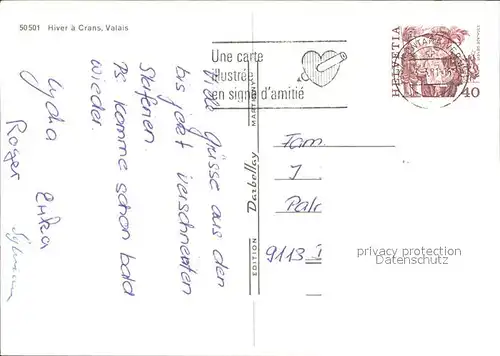 50501 Hiver à Crans, Valais
Une carte
illustrée
en signe d'amitié
HELVETIA
40
Viele Grüsse aus den
bis jetzt verschneiten
Skiferien.
Ps komme schon bald
wieder.
Lydia Erika
Roger
EDITION Darbellay MARTIGNY
Fam.
J
Palr
9113 I
privacy protection
Datenschutz